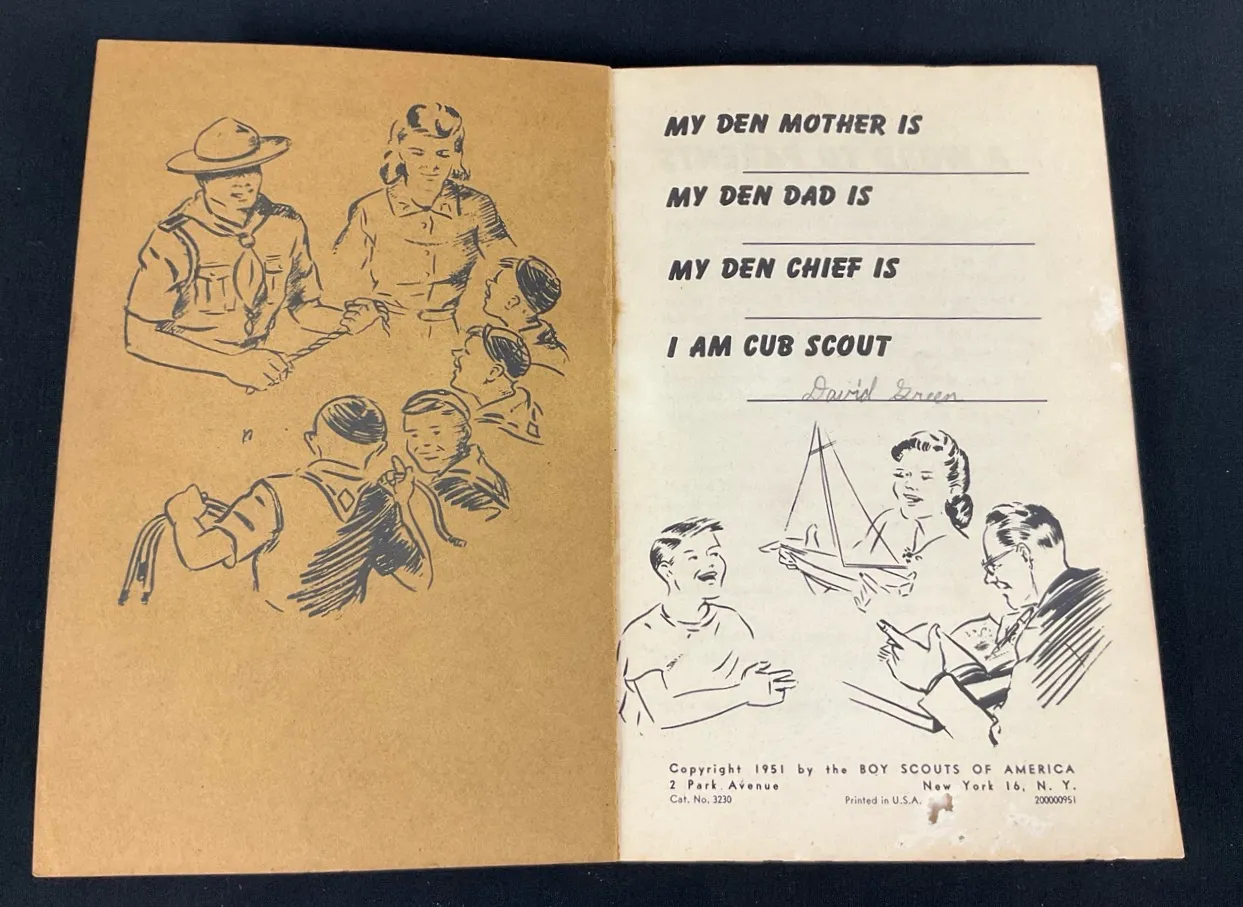 MY DEN MOTHER IS
MY DEN DAD IS
MY DEN CHIEF IS
I AM CUB SCOUT
David Green
Copyright 1951 by the BOY SCOUTS OF AMERICA
2 Park Avenue New York 16, N. Y.
Cat. No. 3230 Printed in U.S.A. 200000951